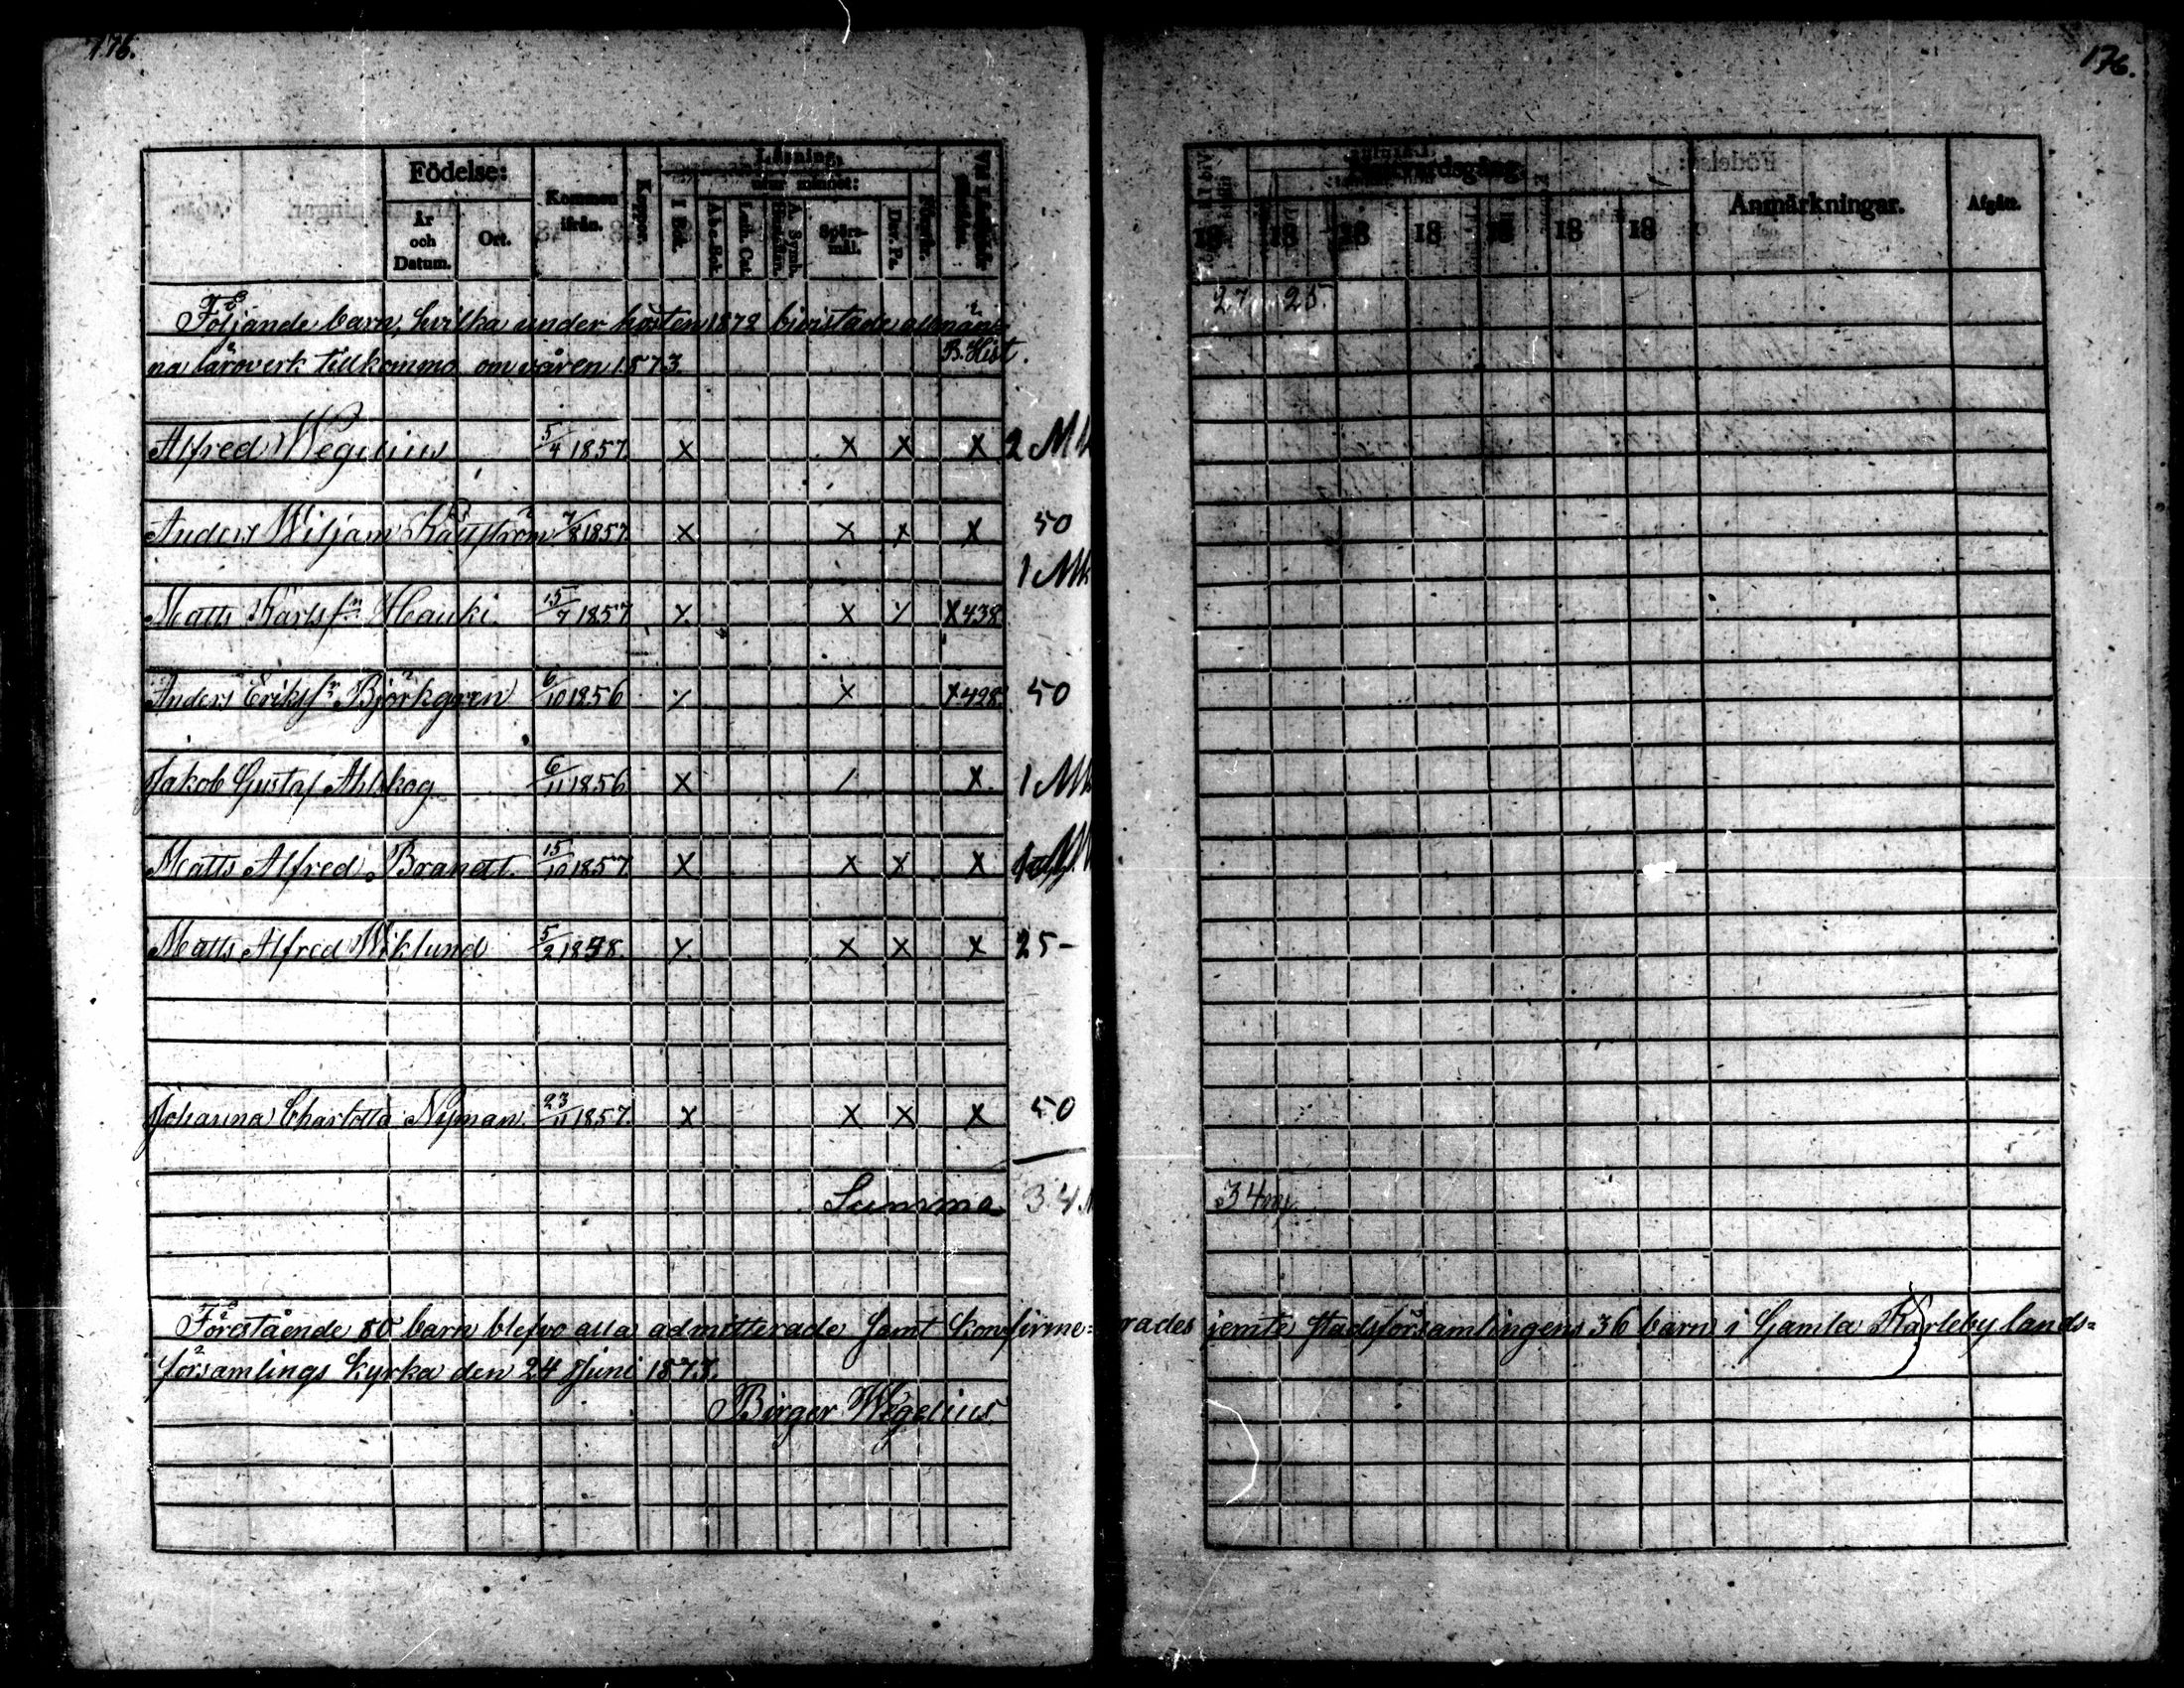 176.
176.
Födelse:
År och Datum.
Ort.
Kommen ifrån.
Koppor.
Läsning,
utur minnet:
I Bok.
A b c-Bok.
Luth. Cat.
A. Symb.
Spörs-mål.
Dav. Ps.
Förstår.
18 18 18 18 18 18 18
Anmärkningar.
Afgått.
Följande barn, hvilka under hösten 1872 bivistade allmän-
na läroverk tillkommo om våren 1873.
B. Hist.
27 25.
Alfred Wegelius 5/4 1857 x x x x 2 Mk
Anders Wiljam Källström 7/8 1857 x x x x 50
1 Mk
Matts Karlsn Hauki 15/7 1857 x x x x 438
Anders Eriksn Björkgren 6/10 1856 x x x 428. 50
Jakob Gustaf Ahlskog 6/11 1856 x / x 1 Mk
Matts Alfred Brandt. 15/10 1857 x x x x
Matts Alfred Wiklund 5/2 1858. x x x x 25-
Johanna Charlotta Nyman. 23/11 1857. x x x x 50
Summa 34 M
34 my
Förestående 80 barn blefvo alla admitterade samt konfirme=rades jemte stadsförsamlingens 36 barn i Gamla Karleby lands=
församlings kyrka den 24 Juni 1873.
Birger Wegelius